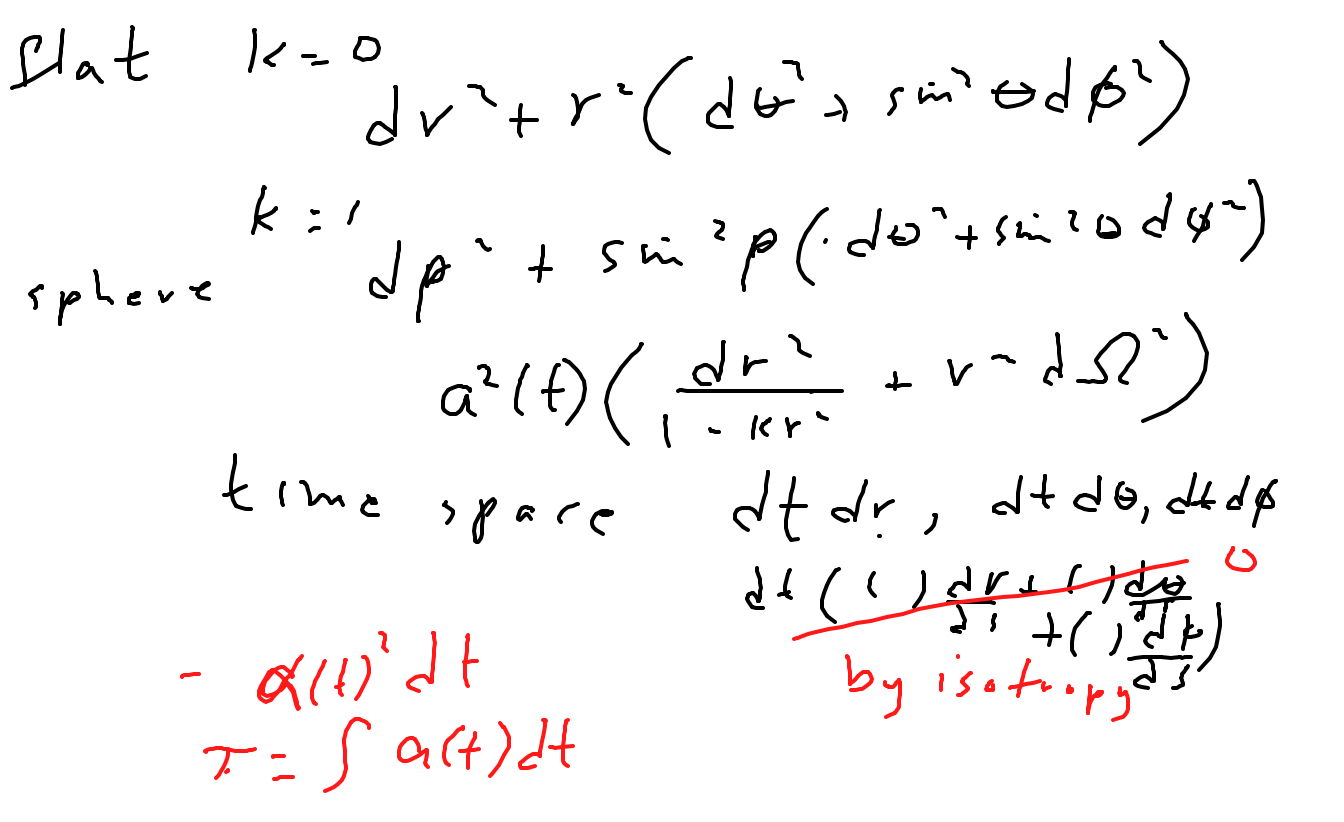 flat k = 0
dr² + r²(dθ² + sin²θ dϕ²)
k = 1
sphere dρ² + sin²ρ(dθ² + sin²θ dϕ²)
a²(t)(dr²/(1 - kr²) + r² dΩ²)
time space dt dr, dt dθ, dt dϕ
dt(( ) dr/ds + ( ) dθ/ds + ( ) dϕ/ds) 0
by isotropy
- α(t)² dt
τ = ∫ α(t) dt